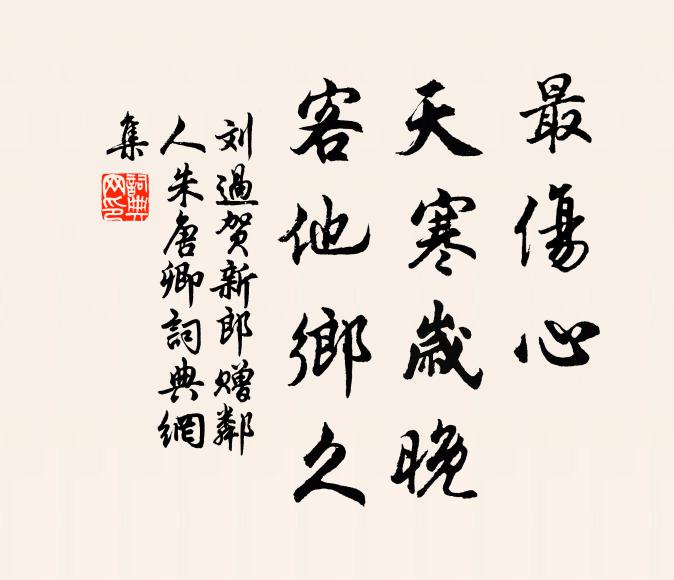 最傷心
天寒歲晚
客他鄉久
刘過贺新郎赠鄰
人朱唐卿詞典網
集
詞典
网印